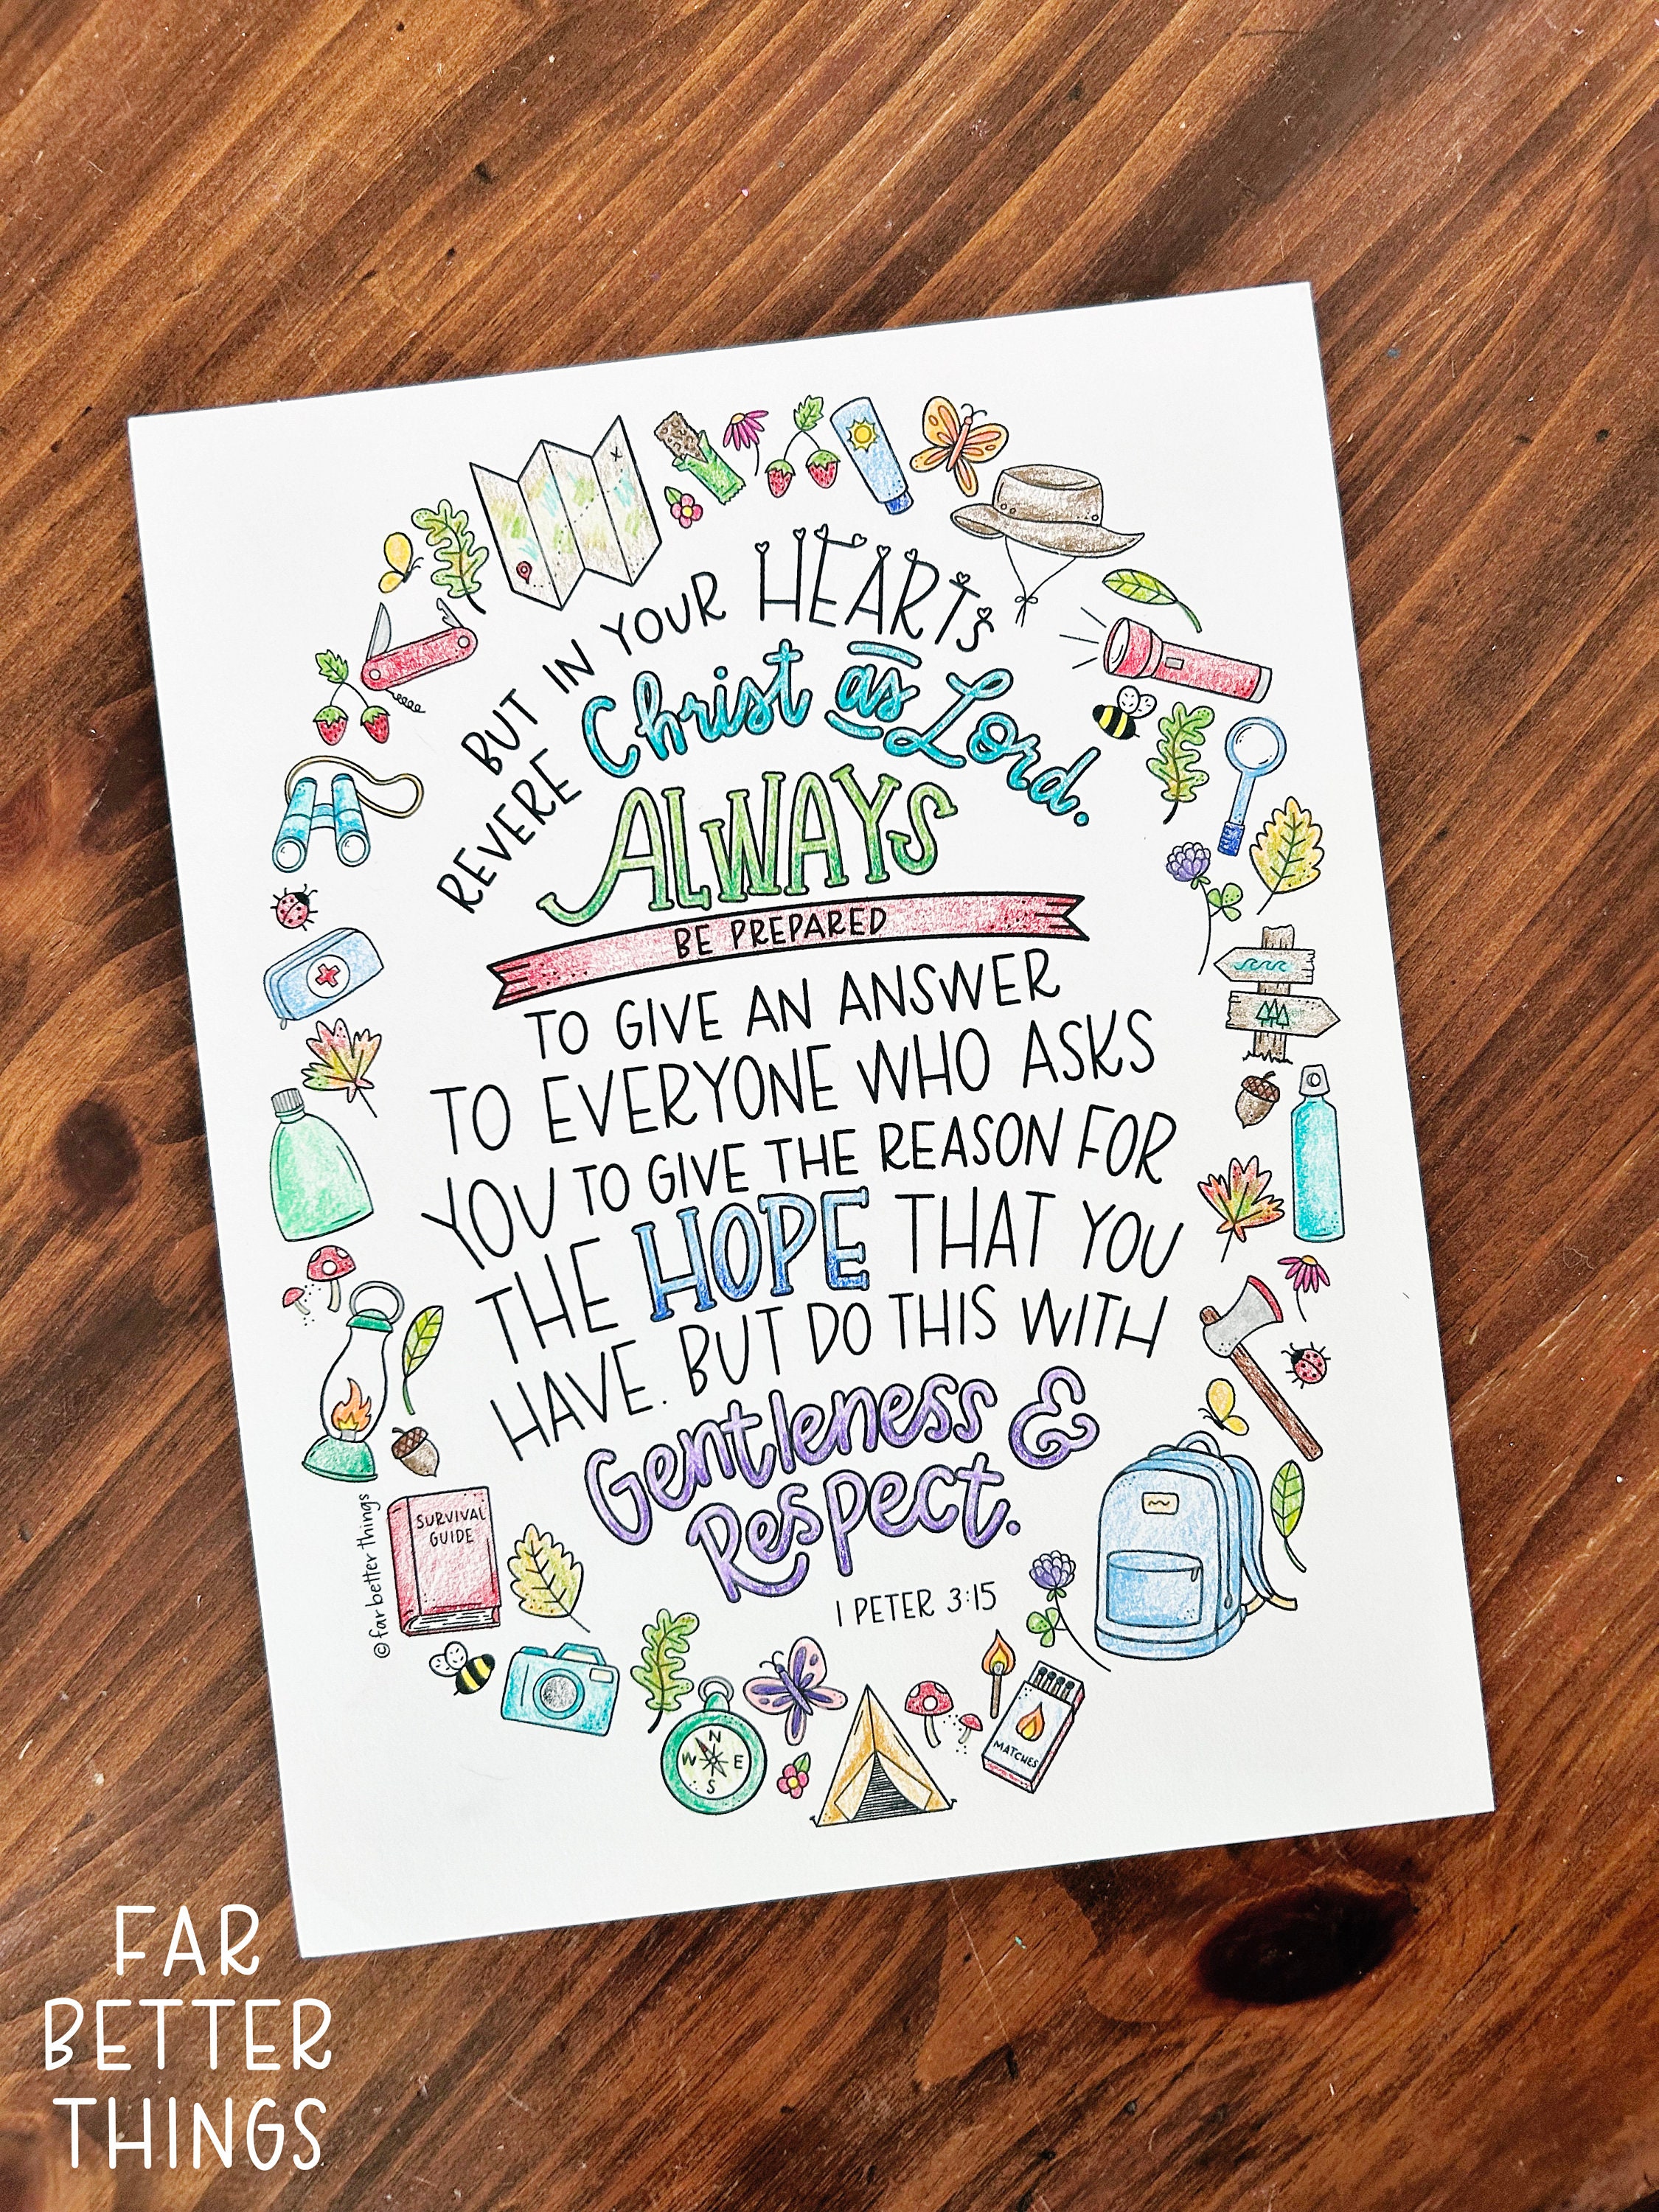 BUT IN YOUR HEARTS
REVERE Christ as Lord.
ALWAYS
BE PREPARED
TO GIVE AN ANSWER
TO EVERYONE WHO ASKS
YOU TO GIVE THE REASON FOR
THE HOPE THAT YOU
HAVE. BUT DO THIS WITH
Gentleness &
Respect.
1 PETER 3:15
SURVIVAL
GUIDE
© far better things
N
W E
S
MATCHES
X
FAR
BETTER
THINGS